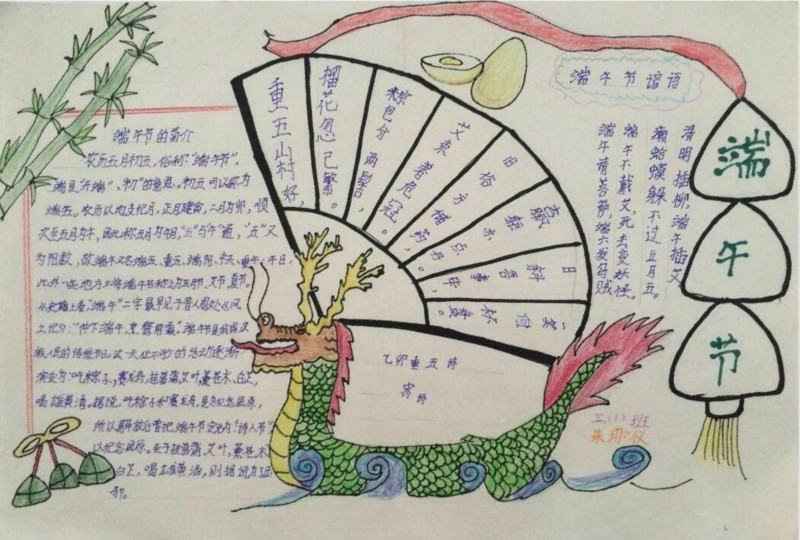 端午节的简介
农历五月初五,俗称"端午节",
端是"开端"、"初"的意思。初五可以称为
端五。农历以地支纪月,正月建寅,二月为卯,顺
次至五月为午,因此称五月为午月,"五"与"午"通,"五"又
为阳数,故端午又名端五、重五、端阳、中天、重午、午日,
此外一些地方又将端午节称之为五月节、艾节、夏节。
从史籍上看,"端午"二字最早见于晋人周处《风
土记》:"仲夏端午,烹鹜用角"。端午节是我国汉
族人民的传统节日。这一天必不可少的活动逐渐
演变为:吃粽子,赛龙舟,挂菖蒲、艾叶,薰苍术、白芷,
喝雄黄酒。据说,吃粽子和赛龙舟,是为纪念屈原,
所以解放后曾把端午节定名为"诗人节"
以纪念屈原。至于挂菖蒲,艾叶,薰苍术
白芷,喝雄黄酒,则据说为压
邪。
重五山村好,
榴花忽已繁。
粽包分两髻,
艾束著危冠。
旧俗方储药,
羸躯亦点丹。
日斜吾事毕,
一笑向杯盘。
乙卯重五
端午节谚语
清明插柳,端午插艾
癞蛤蟆躲不过五月五。
端午不戴艾,死去变妖怪。
端午请菩萨,端六发
端
午
节
三(1)班